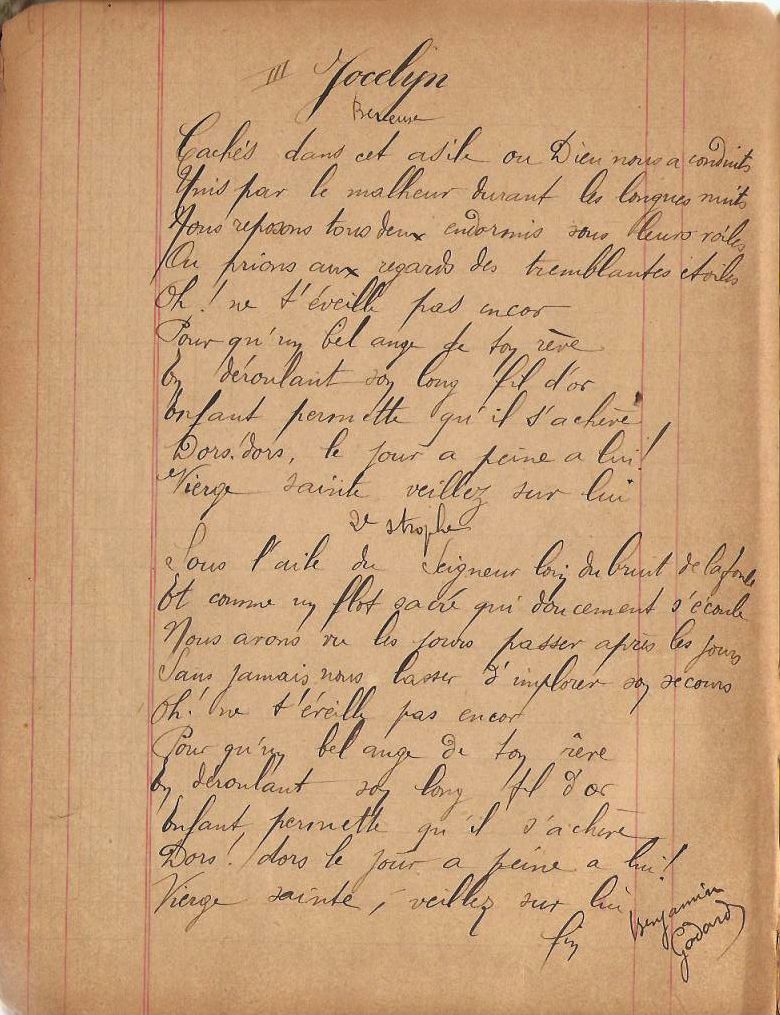 III Jocelyn
Berceuse
Cachés dans cet asile ou Dieu nous a conduits
Unis par le malheur durant les longues nuits
Nous reposons tous deux endormis sous leurs voiles
Ou prions aux regards des tremblantes étoiles
Oh! ne t'éveille pas encor
Pour qu'un bel ange de ton rêve
En déroulant son long fil d'or
Enfant permette qu'il s'achève
Dors! dors, le jour a peine a lui!
Vierge sainte veillez sur lui
2e strophe
Sous l'aile du Seigneur loin du bruit de la foule
Et comme un flot sacré qui doucement s'écoule
Nous avons vu les jours passer après les jours
Sans jamais nous lasser d'implorer son secours
Oh! ne t'éveille pas encor
Pour qu'un bel ange de ton rêve
En déroulant son long fil d'or
Enfant, permette qu'il s'achève
Dors! dors le jour a peine a lui!
Vierge sainte, veillez sur lui
fin
Benjamin
Godard